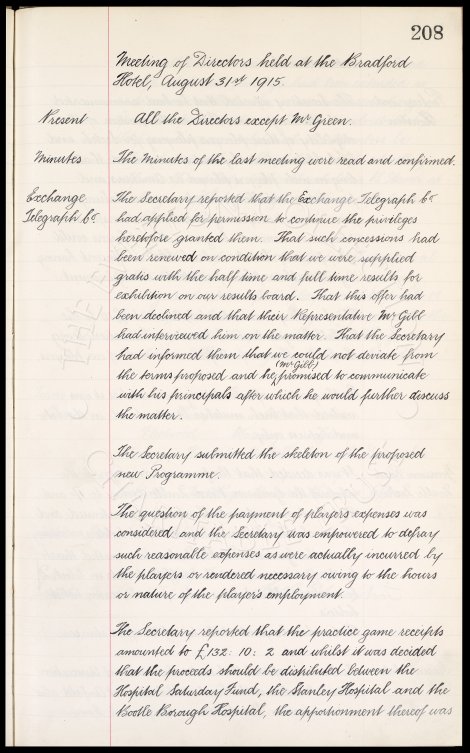 208
Meeting of Directors held at the Bradford
Hotel, August 31st 1915.
Present All the Directors except Mr Green.
Minutes The Minutes of the last meeting were read and confirmed.
Exchange The Secretary reported that the Exchange Telegraph Co
Telegraph Co had applied for permission to continue the privileges
heretofore granted them. That such concessions had
been renewed on condition that we were supplied
gratis with the half time and full time results for
exhibition on our results board. That this offer had
been declined and that their Representative Mr Gibb
had interviewed him on the matter. That the Secretary
had informed them that we could not deviate from
(Mr Gibb)
the terms proposed and he promised to communicate
with his principals after which he would further discuss
the matter.
The Secretary submitted the skeleton of the proposed
new Programme.
The question of the payment of players expenses was
considered and the Secretary was empowered to defray
such reasonable expenses as were actually incurred by
the players or rendered necessary owing to the hours
or nature of the player's employment.
The Secretary reported that the practice game receipts
amounted to £132: 10: 2 and whilst it was decided
that the proceeds should be distributed between the
Hospital Saturday Fund, the Stanley Hospital and the
Bootle Borough Hospital, the apportionment thereof was